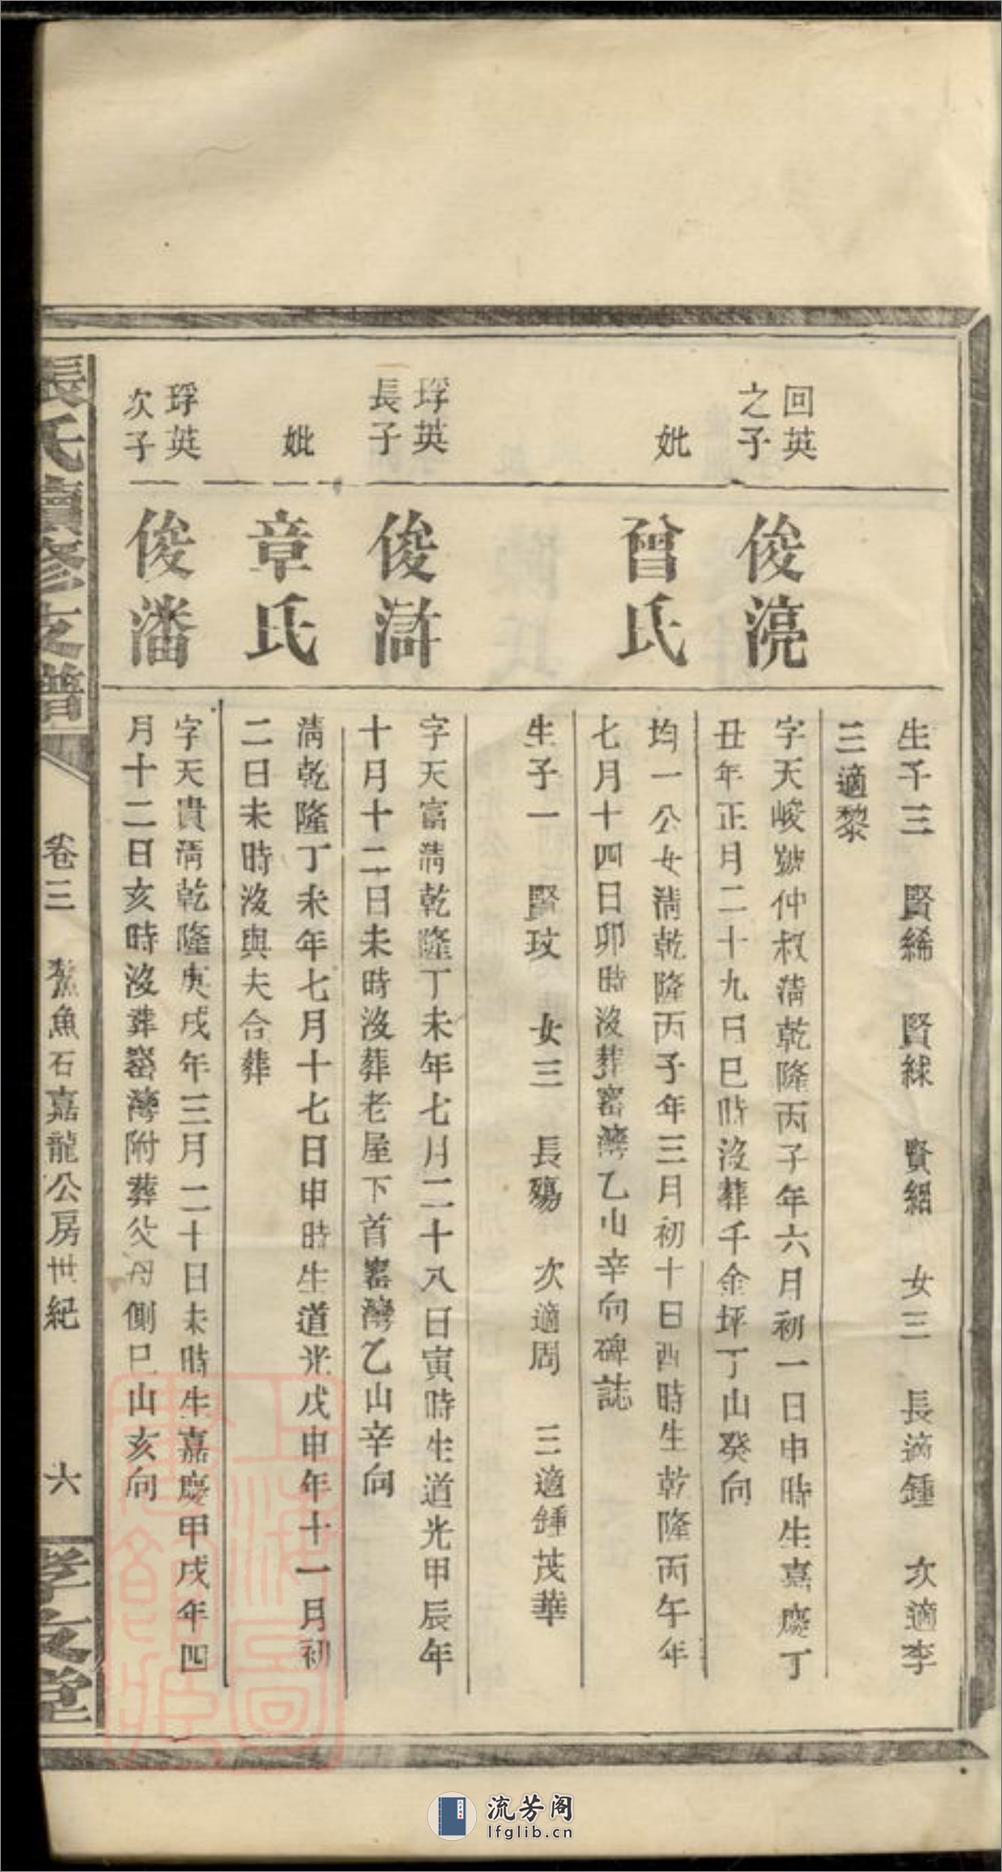 生子三　賢絺　賢絿　賢縉　女三　長適鍾　次適李
三適黎
回英
之子
俊湸
字天峻號仲叔淸乾隆丙子年六月初一日申時生嘉慶丁
丑年正月二十九日巳時沒葬千金坪丁山癸向
妣
曾氏
均一公女淸乾隆丙子年三月初十日酉時生乾隆丙午年
七月十四日卯時沒葬窰灣乙山辛向碑誌
生子一　賢玟　女三　長殤　次適周　三適鍾茂華
琈英
長子
俊滸
字天富淸乾隆丁未年七月二十八日寅時生道光甲辰年
十月十二日未時沒葬老屋下首窰灣乙山辛向
妣
章氏
淸乾隆丁未年七月十七日申時生道光戊申年十一月初
二日未時沒與夫合葬
琈英
次子
俊潘
字天貴淸乾隆庚戌年三月二十日未時生嘉慶甲戌年四
月十二日亥時沒葬窰灣附葬父母側巳山亥向
張氏續修支譜
卷三
鰲魚石嘉龍公房世紀
六
孝友堂
上海圖書館藏
流芳阁
lfglib.cn